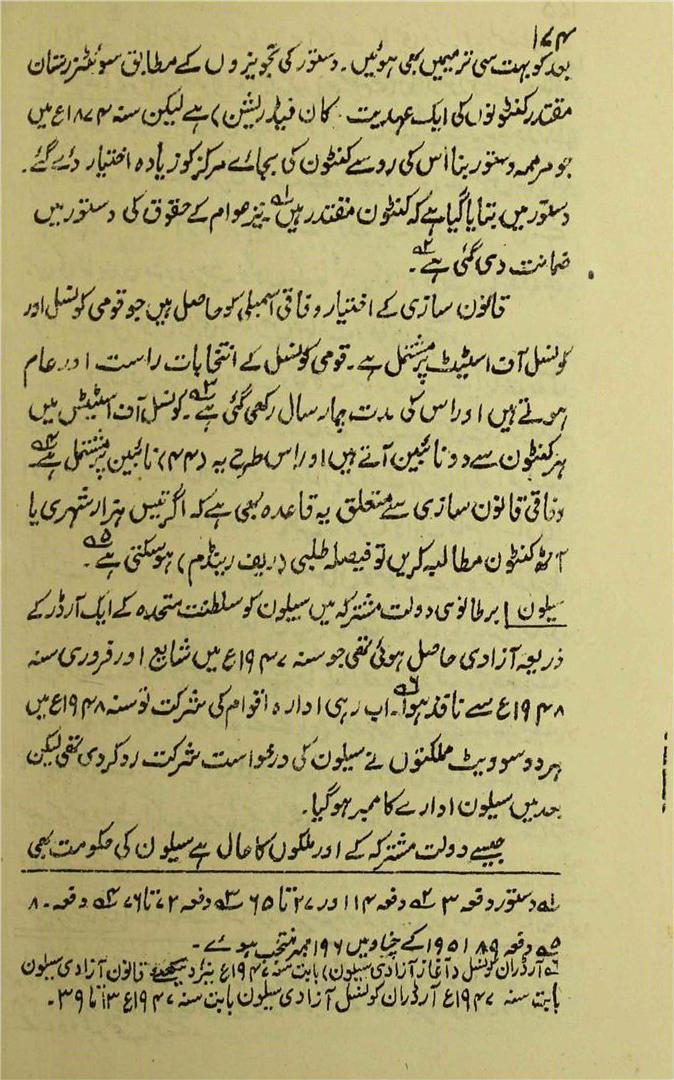 ۱۷۴
بعد کو بہت سی ترمیمیں بھی ہوئیں۔ دستور کی تجویزوں کے مطابق سوئٹزرستان
مقتدر کنٹونوں کی ایک عہدیت (کان فیڈریشن) ہے لیکن سنہ ۱۸۷۴ع میں
جو مرممہ دستور بنا اُس کی رو سے کنٹون کی بجائے مرکز کو زیادہ اختیار دئے گئے۔
دستور میں بتایا گیا ہے کہ کنٹون مقتدر ہیں ۱؎ نیز عوام کے حقوق کی دستور میں
ضمانت دی گئی ہے ۲؎۔
قانون سازی کے اختیار وفاقی اسمبلی کو حاصل ہیں جو قومی کونسل اور
کونسل آف اسٹیٹ پر مشتمل ہے۔ قومی کونسل کے انتخابات راست اور عام
ہوتے ہیں اور اس کی مدت چار سال رکھی گئی ہے ۳؎۔ کونسل آف اسٹیٹس میں
ہر کنٹون سے دو نائبین آتے ہیں اور اس طرح یہ (۴۴) نائبین پر مشتمل ہے ۴؎۔
وفاقی قانون سازی سے متعلق یہ قاعدہ بھی ہے کہ اگر تیس ہزار شہری یا
آٹھ کنٹون مطالبہ کریں تو فیصلہ طلبی (ریف رینڈم) ہوسکتی ہے ۵؎۔
سیلون | برطانوی دولت مشترکہ میں سیلون کو سلطنت متحدہ کے ایک آرڈر کے
ذریعہ آزادی حاصل ہوئی تھی جو سنہ ۱۹۴۷ع میں شایع اور فروری سنہ
۱۹۴۸ع سے نافذ ہوا ۶؎۔ اب رہی ادارہ اقوام کی شرکت تو سنہ ۱۹۴۸ع میں
ہر دو سوویٹ مملکتوں نے سیلون کی درخواست شرکت رد کردی تھی لیکن
بعد میں سیلون ادارے کا ممبر ہوگیا۔
جیسے دولت مشترکہ کے اور ملکوں کا حال ہے سیلون کی حکومت بھی
۱؎ دستور دفعہ ۳ ۲؎ دفعہ ۱۱۴ اور ۲۷ تا ۶۵ ۳؎ دفعہ ۷۲ تا ۷۶ ۴؎ دفعہ ۔ ۸
۵؎ دفعہ ۸۹ ۱۹۵۱ کے چناو میں ۱۹۶ ممبر منتخب ہوئے۔
۶؎ آرڈران کونسل (آغاز آزادی سیلون) بابت سنہ ۱۹۴۷ع نیز دیکھئے قانون آزادی سیلون
بابت سنہ ۱۹۴۷ع آرڈران کونسل آزادی سیلون بابت سنہ ۱۹۴۷ع ۱۳ تا ۳۹۔